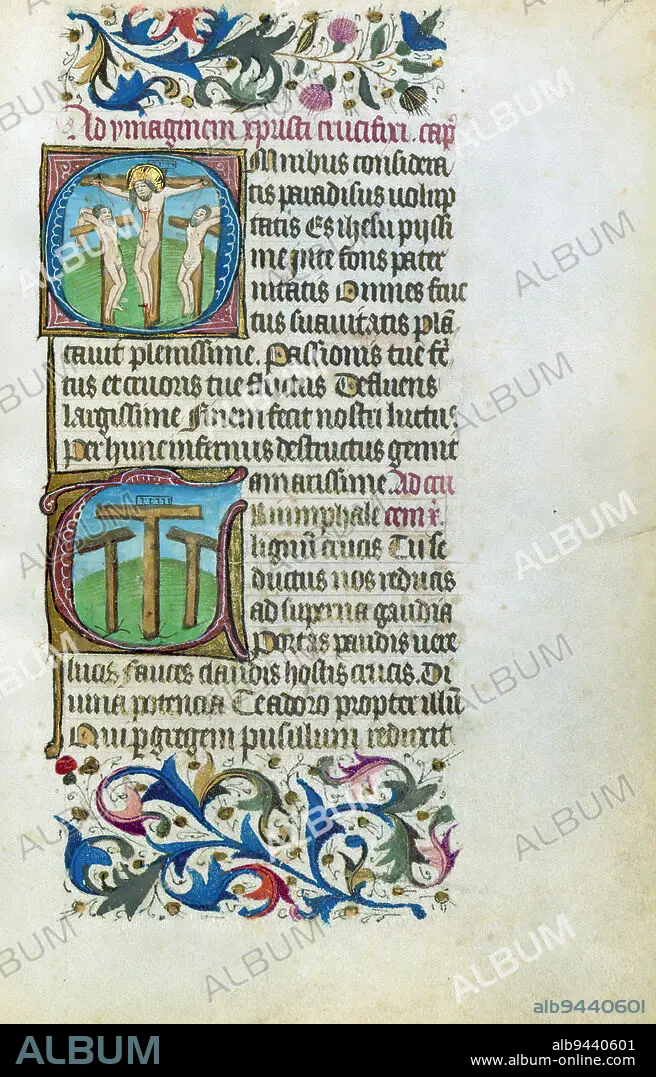 Ad ymaginem xpristi crucifixi. cap
Omnibus considera
tis paradisus uolup
tatis Es ihesu pijssi
me vite fons pater
nitatis Omnes fruc
tus suauitatis plā
tauit plenissime. Passionis tue
tus et cruoris tue fluctus Defluens
largissime Finem fecit nostri luctus
Per hunc infernus destructus gemit
amarissime. Ad cru
Triumphale cem x̄.
lignū crucis Tu se
ductus nos reducis
ad superna gaudia
Portas pandis uere
lucis fauces claudis hostis crucis. Di
uina potencia Te adoro propter illū
Qui p gregem pusillum reduxit
ALBUM
alb9440601
ALBUM
alb9440601
www.album-online.com